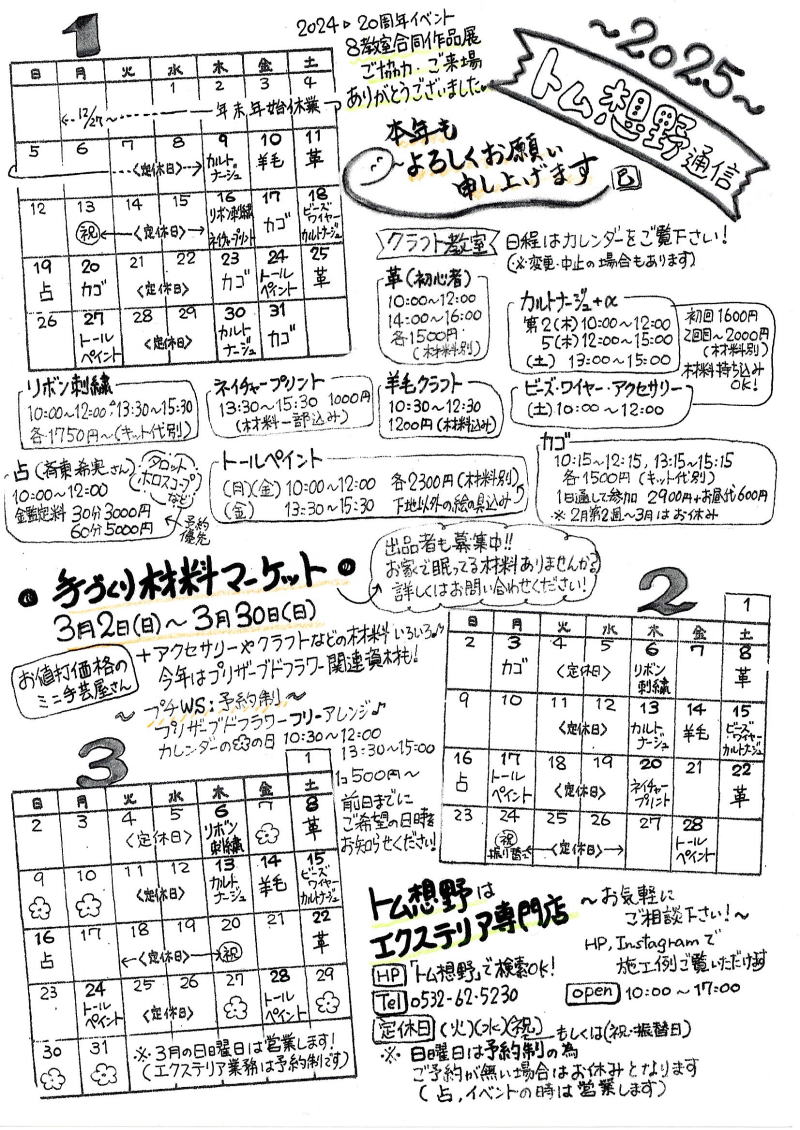 ～2025～
トム想野通信
2024▷20周年イベント
8教室合同作品展
ご協力・ご来場
ありがとうございました
本年も
よろしくお願い
申し上げます
巳
1
日 月 火 水 木 金 土
1 2 3 4
←12/27～ 年末年始休業→
5 6 7 8 9 10 11
<定休日> カルトナージュ 羊毛 革
12 13 14 15 16 17 18
祝 <定休日> リボン刺繍 ネイチャープリント カゴ ビーズワイヤー カルトナージュ
19 20 21 22 23 24 25
占 カゴ <定休日> カゴ トールペイント 革
26 27 28 29 30 31
トールペイント <定休日> カルトナージュ カゴ
クラフト教室 日程はカレンダーをご覧下さい!
(※変更・中止の場合もあります)
革(初心者)
10:00～12:00
14:00～16:00
各1500円
(材料別)
カルトナージュ+α
第2(木)10:00～12:00
5(木)12:00～15:00
(土) 13:00～15:00
初回1600円
2回目～2000円
(材料別)
材料持ち込み
OK!
リボン刺繍
10:00～12:00・13:30～15:30
各1750円～(キット代別)
ネイチャープリント
13:30～15:30 1000円
(材料一部込み)
羊毛クラフト
10:30～12:30
1200円(材料込み)
ビーズ・ワイヤー・アクセサリー
(土)10:00～12:00
占(斉東希実さん)
タロット
ホロスコープ
など
10:00～12:00
鑑定料 30分3000円
60分5000円
予約優先
トールペイント
(月)(金)10:00～12:00 各2300円(材料別)
(金) 13:30～15:30 下地以外の絵の具込み
カゴ
10:15～12:15, 13:15～15:15
各1500円(キット代別)
1日通して参加 2900円+お昼代600円
※2月第2週～3月はお休み
手づくり材料マーケット
3月2日(日)～3月30日(日)
出品者も募集中!!
お家で眠ってる材料ありませんか?
詳しくはお問い合わせください!
お値打価格の
ミニ手芸屋さん
+アクセサリーやクラフトなどの材料いろいろ♪
今年はプリザーブドフラワー関連資材も!
～プチWS:予約制～
プリザーブドフラワーフリーアレンジ♪
カレンダーの の日 10:30～12:00
13:30～15:00
1500円～
前日までに
ご希望の日時を
お知らせください!
2
1
2 3 4 5 6 7 8
カゴ <定休日> リボン刺繍 革
9 10 11 12 13 14 15
<定休日> カルトナージュ 羊毛 ビーズワイヤー カルトナージュ
16 17 18 19 20 21 22
占 トールペイント <定休日> ネイチャープリント 革
23 24 25 26 27 28
祝 振り替で <定休日> トールペイント
日 月 火 水 木 金 土
3
1
日 月 火 水 木 金 土
2 3 4 5 6 7 8
<定休日> リボン刺繍 革
9 10 11 12 13 14 15
<定休日> カルトナージュ 羊毛 ビーズワイヤー カルトナージュ
16 17 18 19 20 21 22
占 <定休日> 祝 革
23 24 25 26 27 28 29
トールペイント <定休日> トールペイント
30 31
※3月の日曜日は営業します!
(エクステリア業務は予約制です)
トム想野は
エクステリア専門店
～お気軽に
ご相談下さい!～
HP,Instagramで
施工例ご覧いただけます
HP 「トム想野」で検索OK!
Tel 0532-62-5230
open 10:00～17:00
定休日 (火)(水)(祝) もしくは(祝・振替日)
※日曜日は予約制の為
ご予約が無い場合はお休みとなります
(占,イベントの時は営業します)